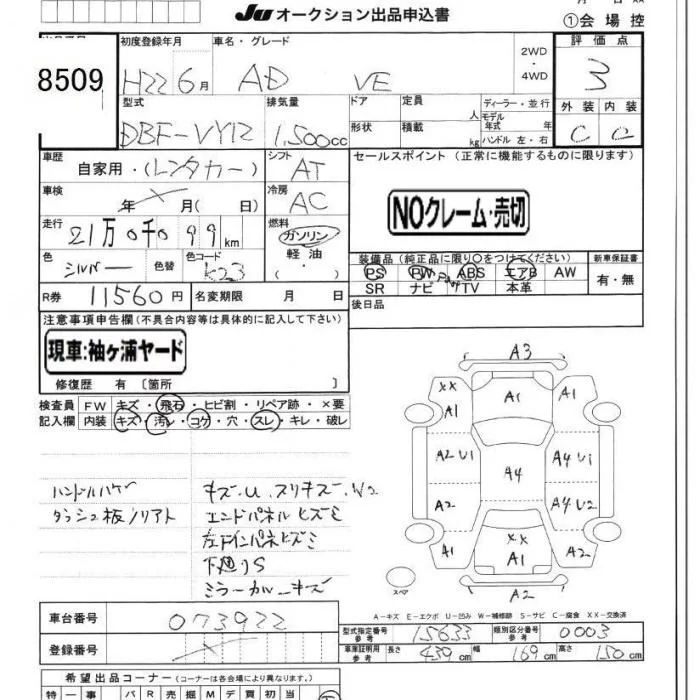 Ju オークション出品申込書
①会場控
8509
初度登録年月
車名・グレード
2WD
・
4WD
評価点
H22 6月
AD VE
3
型式
排気量
ドア
定員
人
ディーラー・並行
外装 内装
DBF-VY12
1,500cc
形状
積載
kg
モデル年式 年
ハンドル 左・右
C C
車歴
自家用・(レンタカー)
シフト
AT
セールスポイント (正常に機能するものに限ります)
車検
年 月( 日)
冷房
AC
NOクレーム・売切
走行
21万0千099km
燃料
ガソリン
軽油
( ・ )
色
シルバー
色替
色コード
K23
装備品 (純正品に限り○をつけてください)
新車保証書
PS PW ABS エアB AW
有・無
SR ナビ TV 本革
R券 11560円
名変期限 月 日
後日品
注意事項申告欄(不具合内容等は具体的に記入して下さい)
現車:袖ヶ浦ヤード
修復歴 有 〔箇所 〕
検査員
記入欄
FW キズ・飛石・ヒビ割・リペア跡・×要
内装 キズ・汚レ・コゲ・穴・スレ・キレ・破レ
ハンドルハゲ
ダッシュ板ノリアト
キズ・U.スリキズ.W2
エンドパネルヒズミ
左ドインパネヒズミ
下廻りS
ミラーカバーキズ
A3
XX
A1
A1
A1
A2 U1
A4
A4 U1
A2
A4 U2
A1
XX
A1
A2
スペア
A2
A－キズ E－エクボ U－凹み W－補修跡 S－サビ C－腐食 XX－交換済
車台番号
073922
登録番号
型式指定番号
参考
15633
類別区分番号
参考
0003
車庫証明用
参考
長さ
439cm
幅
169cm
高さ
150cm
希望出品コーナー (コーナーは各会場により異なります。)
特 一 事 バ R 売 掘 M デ 買 初 当